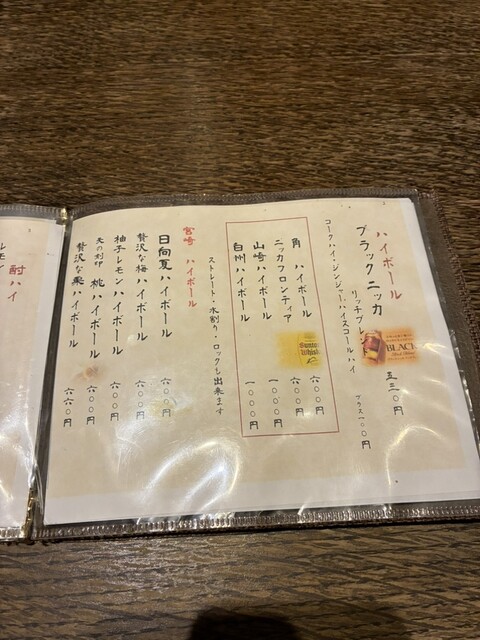 ハイボール
ブラックニッカ
リッチブレンド
BLACK
五三〇円
コークハイ・ジンジャーハイスコールハイ
プラス一〇〇円
角 ハイボール 六〇〇円
ニッカフロンティア 六〇〇円
山崎 ハイボール 一〇〇〇円
白州ハイボール 一〇〇〇円
ストレート・水割り・ロックも出来ます
宮崎 ハイボール
日向夏ハイボール 六〇〇円
贅沢な梅ハイボール 六〇〇円
柚子レモンハイボール 六〇〇円
桃ハイボール 六〇〇円
贅沢な栗ハイボール 六六〇円
酎ハイ